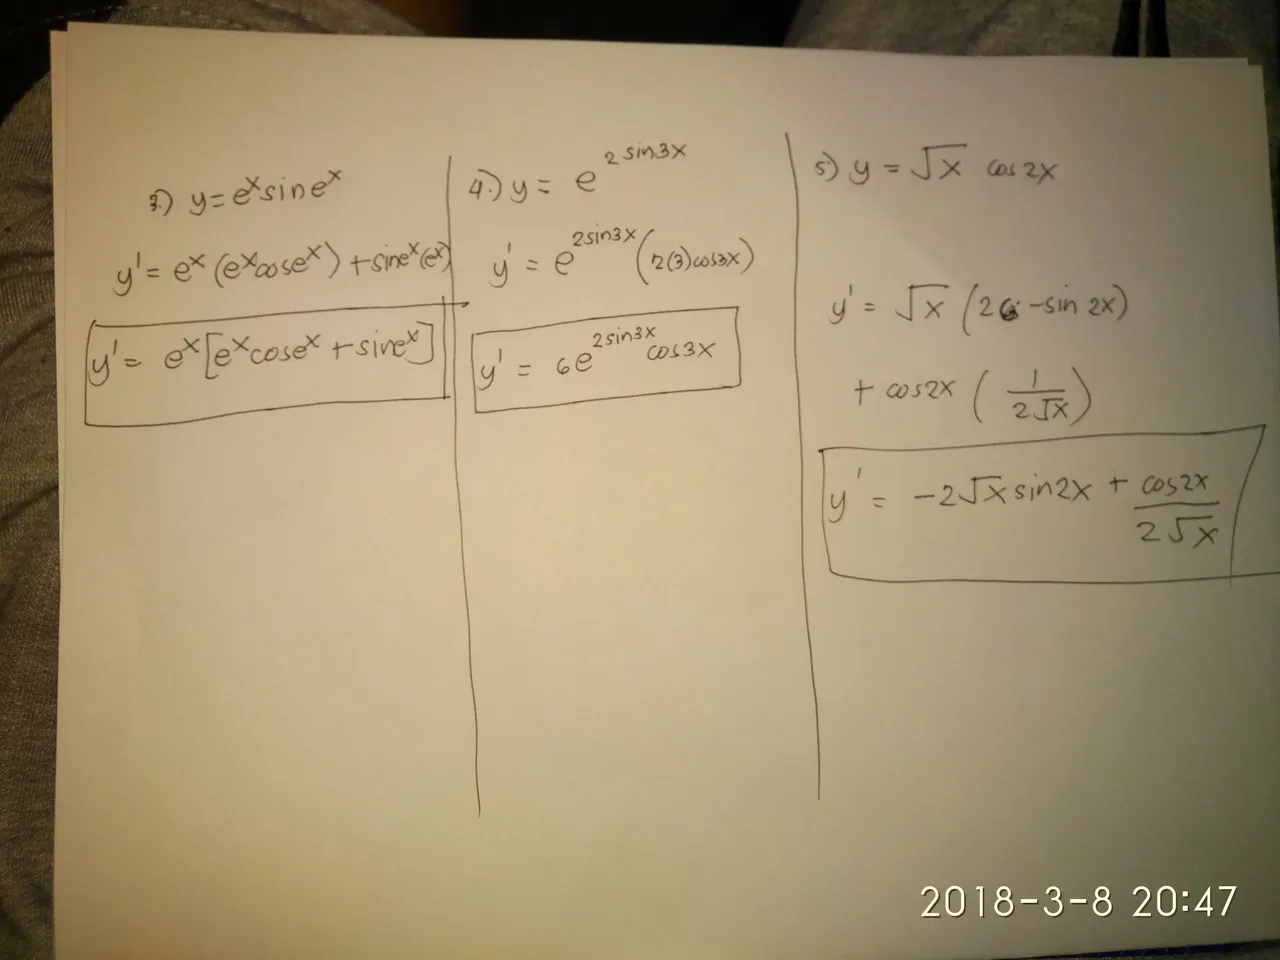 3.) y = eˣ sin eˣ
y' = eˣ (eˣ cos eˣ) + sin eˣ (eˣ)
y' = eˣ [eˣ cos eˣ + sin eˣ]
4.) y = e^{2 sin 3x}
y' = e^{2 sin 3x} (2(3) cos 3x)
y' = 6 e^{2 sin 3x} cos 3x
5.) y = √x cos 2x
y' = √x (2 - sin 2x)
+ cos 2x (1/(2√x))
y' = -2√x sin 2x + cos 2x/(2√x)
2018-3-8 20:47